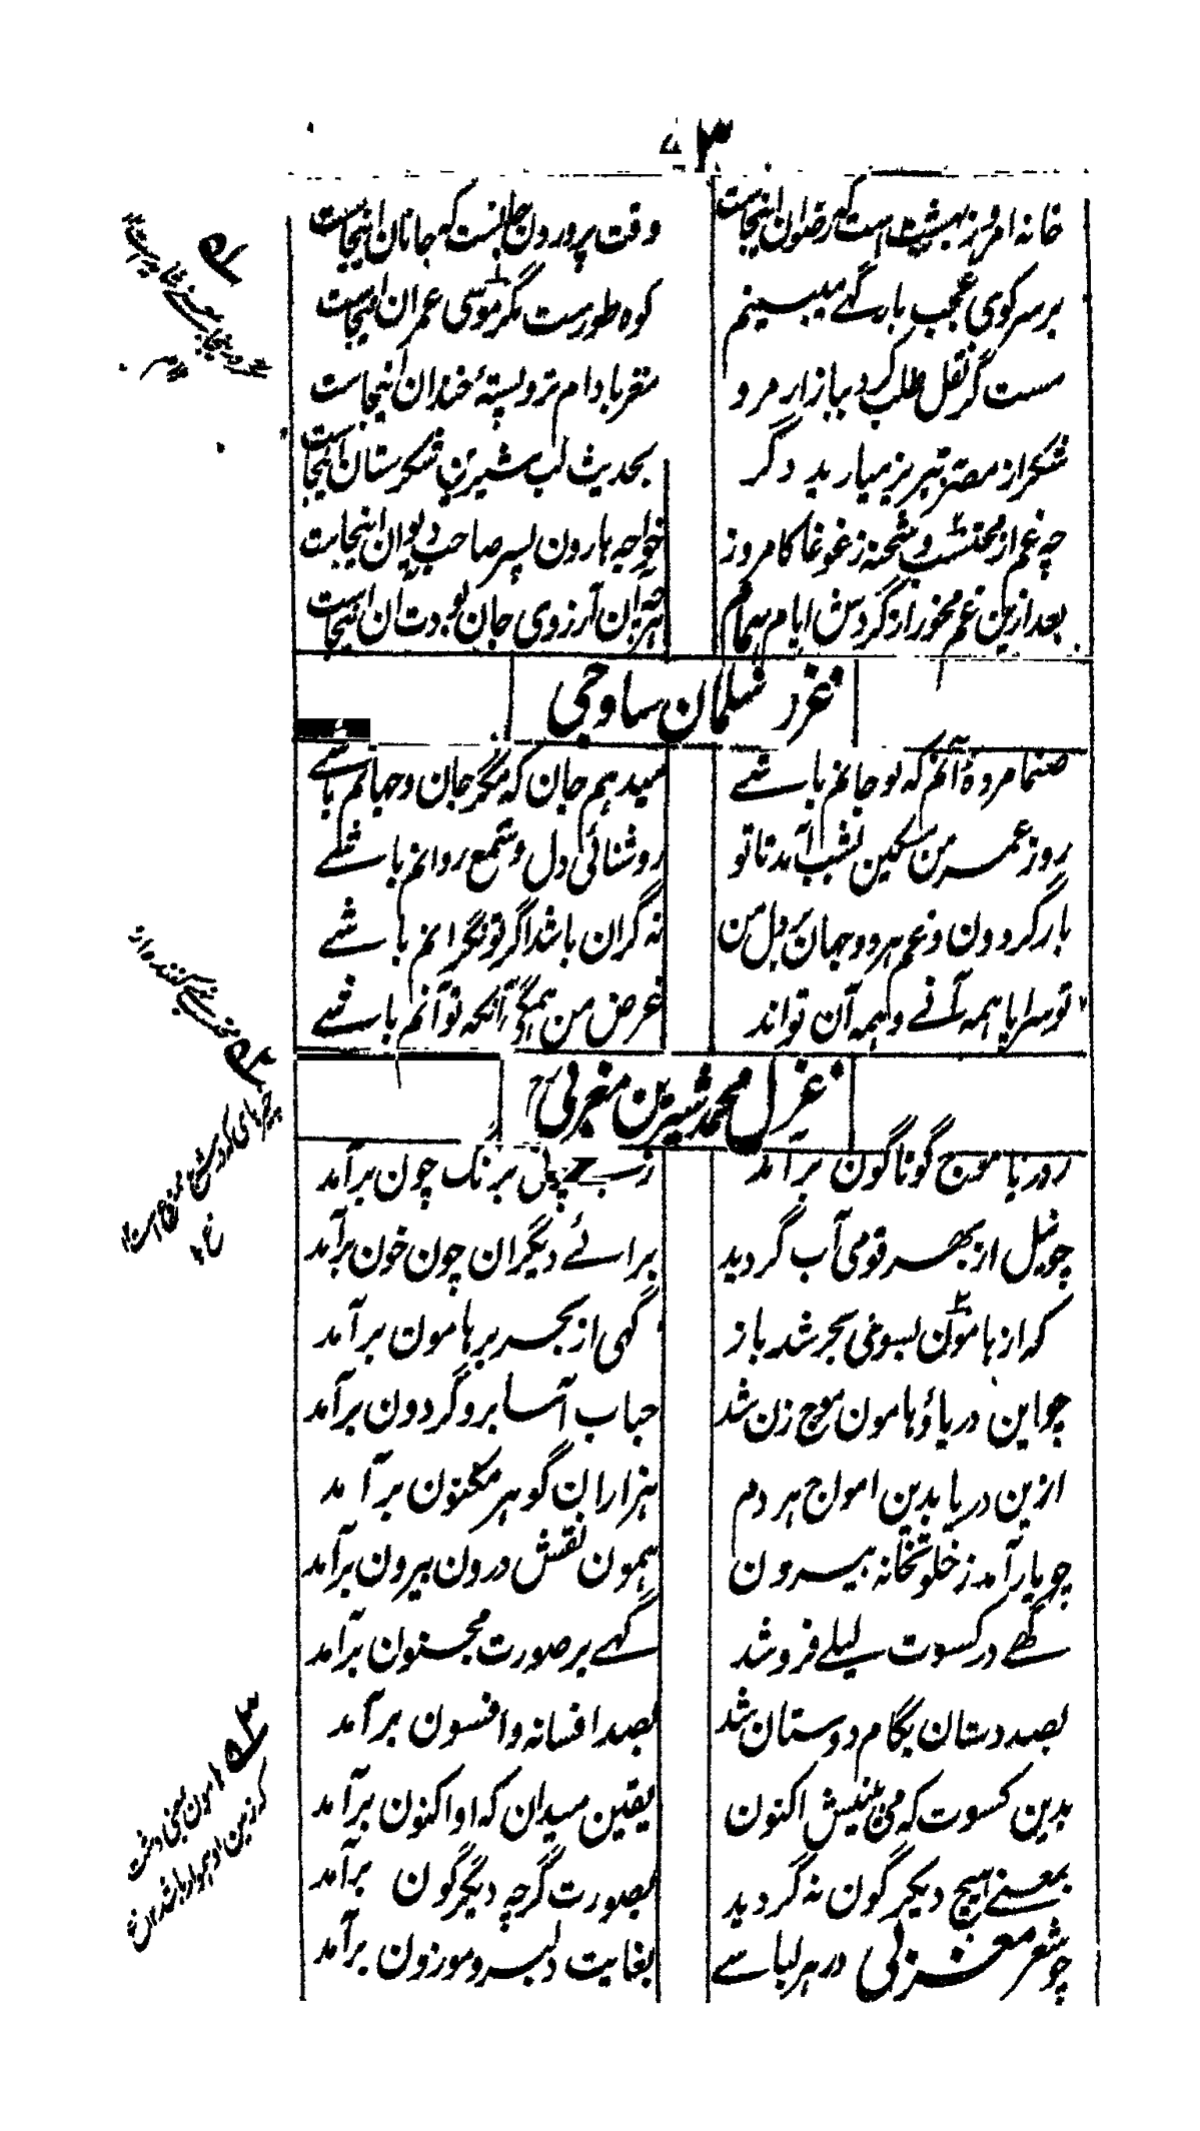 ۵۳
خانه امروز بهشت است که رضوان اینجاست وقت پروردن جانست که جانان اینجاست
بر سر کوی عجب بارگهے میبینم کوه طورست مگر موسی عمران اینجاست
مست گر نقل طلب کرد ببازار مرو مغز بادام تر و پستهٔ خندان اینجاست
شکر از مصر بتبریز میارید دگر بحدیث لب شیرین شکرستان اینجاست
چه غم از محتسب و شحنه و غوغا کامروز خواجه هارون پسر صاحب دیوان اینجاست
بعد ازین غم مخور از گردش ایام همام هرچه آن آرزوی جان بودت آن اینجاست
غزل سلمان ساوجی
صنما مردهٔ آنم که تو جانم باشے میدهم جان که مگر جان و جهانم باشے
روز عمر من مسکین بشب آمد تا تو روشنائی دل و شمع روانم باشے
بار گردون و غم هر دو جهان بر دل من نه گران باشد اگر تو نگرانم باشے
تو سراپا همه آنے و همه آن تواند غرض من همگی آنکه تو آنم باشے
غزل محمد شیرین مغربی
ز دریا موج گوناگون برآمد ز بیچونی برنگ چون برآمد
چو نیل از بهر قومی آب گردید برائے دیگران چون خون برآمد
که از هامون بسوی بحر شد باز گهی از بحر بر هامون برآمد
چو این دریاؤ هامون موج زن شد حباب آسا برو گردون برآمد
ازین دریا بدین امواج هر دم هزاران گوهر مکنون برآمد
چو یار آمد ز خلوتخانه بیرون همون نقش درون بیرون برآمد
گهے در کسوت لیلے فرو شد گهے بر صورت مجنون برآمد
بصد دستان بکام دوستان شد بصد افسانه و افسون برآمد
بدین کسوت که می بینیش اکنون یقین میدان که او اکنون برآمد
بمعنے هیچ دیگرگون نه گردید بصورت گرچه دیگرگون برآمد
چو شعر مغربی در هر لباسے بغایت دلبر و موزون برآمد